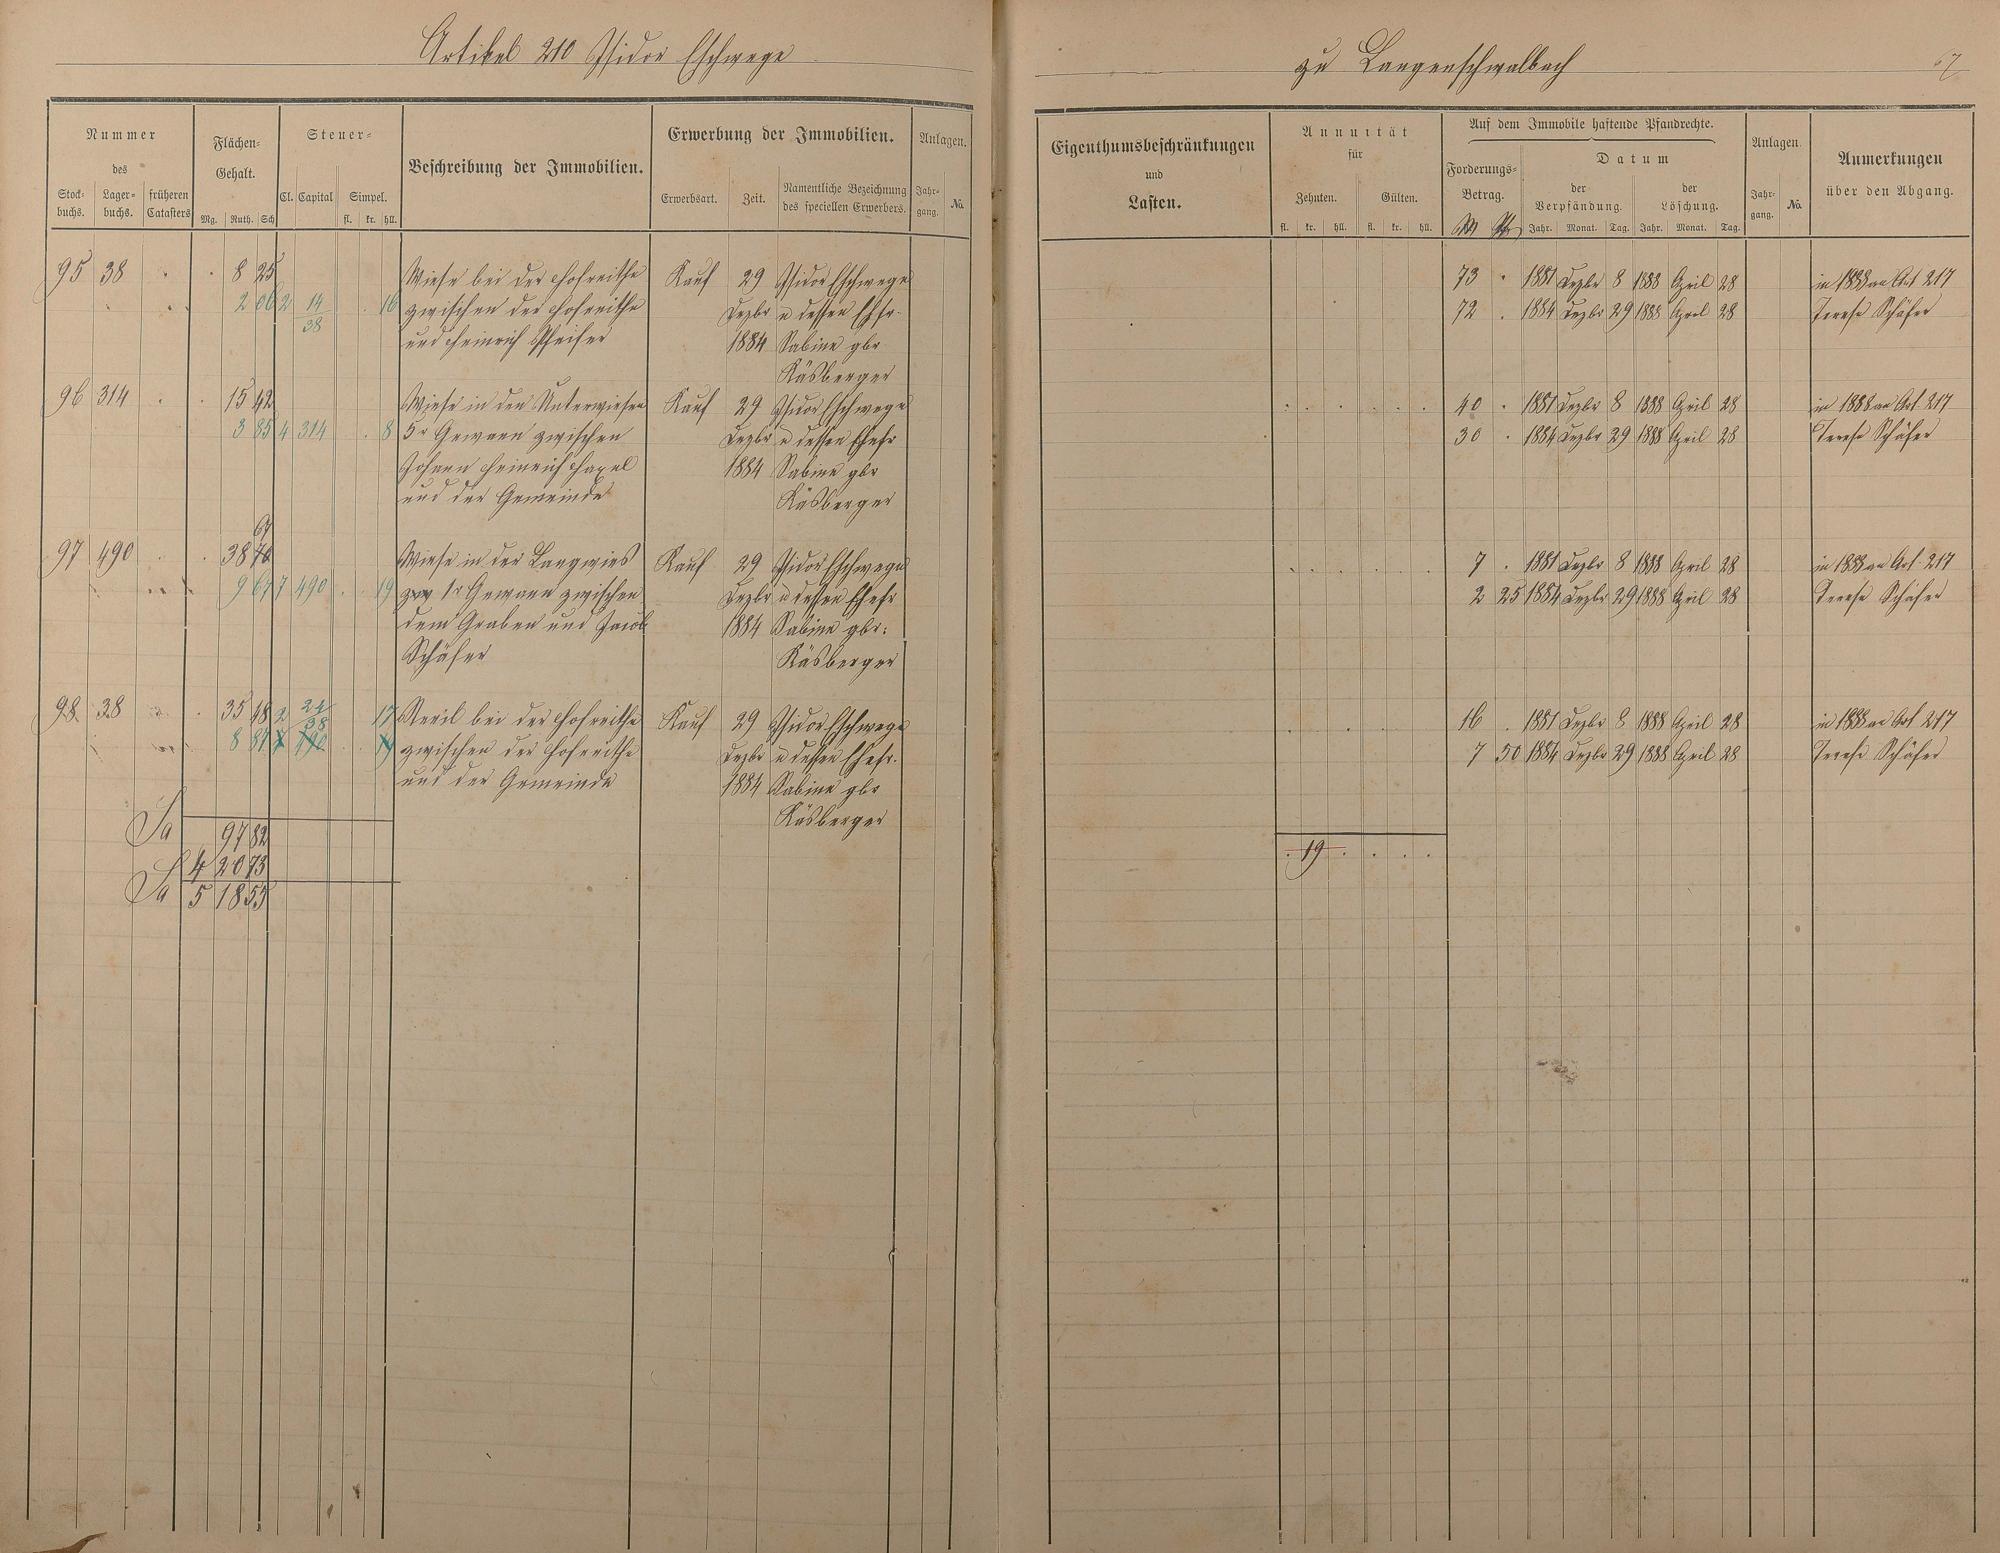 Artikel 210 Isidor Eschwege
zu Langenschwalbach
67
Nummer
des
Stock-buchs. Lager-buchs. früheren Catasters
Flächen-Gehalt.
Mg. Ruth. Sch
Steuer-
Cl. Capital Simpel.
fl. kr. hll.
Beschreibung der Immobilien.
Erwerbung der Immobilien.
Erwerbsart. Zeit. Namentliche Bezeichnung des speciellen Erwerbers.
Anlagen.
Jahr-gang. No.
Eigenthumsbeschränkungen
und
Lasten.
Annuität
für
Zehnten. Gülten.
fl. kr. hll. fl. kr. hll.
Auf dem Immobile haftende Pfandrechte.
Forderungs-Betrag.
Datum
der Verpfändung. der Löschung.
Jahr. Monat. Tag. Jahr. Monat. Tag.
Anlagen.
Jahr-gang. No.
Anmerkungen
über den Abgang.
95 38 . . 8 25 Wiese bei der Hofreithe Kauf 29 Isidor Eschwege 73 . 1881 Dezbr 8 1888 April 28 in 1888 an Art 217
2 06 2 14/38 . 16 zwischen der Hofreithe Dezbr u dessen Ehfr. 72 . 1884 Dezbr 29 1888 April 28 Terese Schäfer
und Heinrich Pfeifer 1884 Sabine gbr
Käsberger
96 314 . . 15 42 Wiese in den Unterwiesen Kauf 29 Isidor Eschwege 40 . 1881 Dezbr 8 1888 April 28 in 1888 an Art 217
3 85 4 314 . 8 5r Gewann zwischen Dezbr u dessen Ehefr 30 . 1884 Dezbr 29 1888 April 28 Terese Schäfer
Johann Heinrich 1884 Sabine gbr
und der Gemeinde Käsberger
67
97 490 . . 38 70 Wiese in der Langwies Kauf 29 Isidor Eschwege 7 . 1881 Dezbr 8 1888 April 28 in 1888 an Art 217
9 67 7 490 . . 19 1r Gewann zwischen Dezbr u dessen Ehefr 2 25 1884 Dezbr 29 1888 April 28 Terese Schäfer
dem Graben und Jacob 1884 Sabine gbr:
Schäfer Käsberger
98 38 . 35 48 2 24/38 17 bei der Hofreithe Kauf 29 Isidor Eschwege 16 . 1881 Dezbr 8 1888 April 28 in 1888 an Art 217
8 87 zwischen der Hofreithe Dezbr u dessen Ehefr. 7 50 1884 Dezbr 29 1888 April 28 Terese Schäfer
und der Gemeinde 1884 Sabine gbr
Käsberger
Sa 97 82
. 19 . . . .
4 20 73
Sa 5 18 55